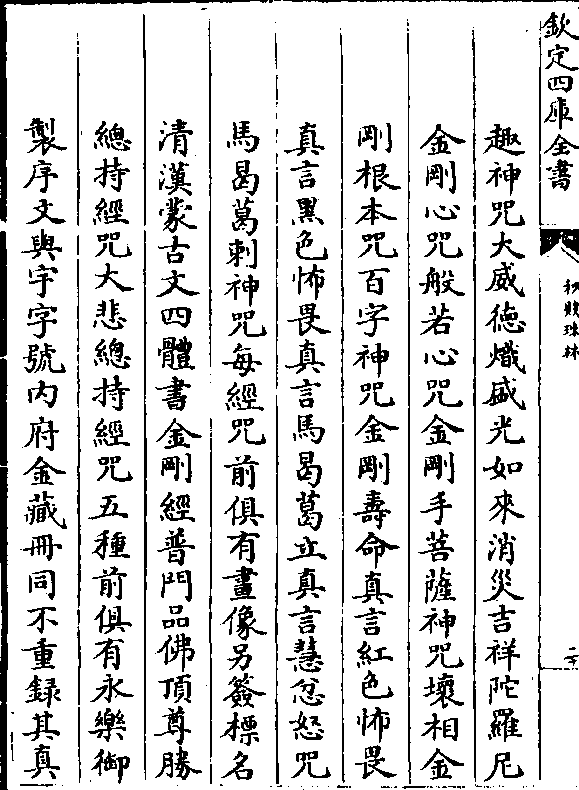 欽定四庫全書
秘殿珠林
二十
趣神咒大威德熾盛光如來消災吉祥陀羅尼
金剛心咒般若心咒金剛手菩薩神咒壞相金
剛根本咒百字神咒金剛壽命真言紅色怖畏
真言黑色怖畏真言馬曷葛立真言慧忿怒咒
馬曷葛剌神咒每經咒前俱有畫像另簽標名
清漢蒙古文四體書金剛經普門品佛頂尊勝
總持經咒大悲總持經咒五種前俱有永樂御
製序文與宇字號內府金藏冊同不重録其真